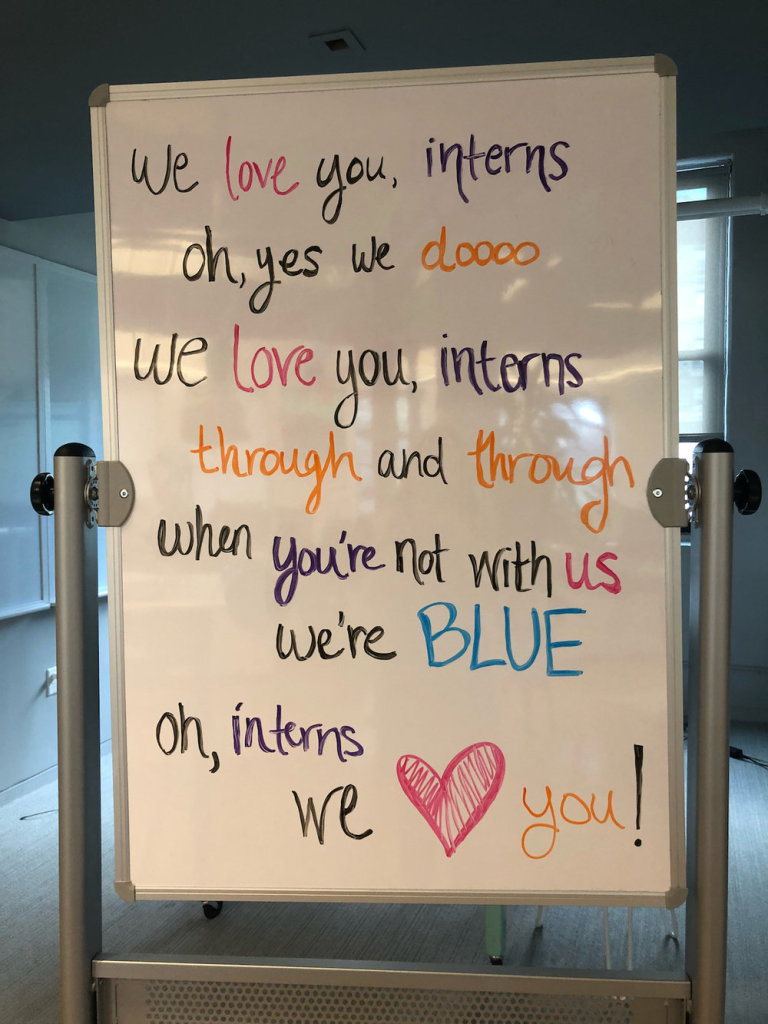 We love you, interns
oh, yes we doooo
We love you, interns
through and through
when you're not with us
we're BLUE
oh, interns
we ♥ you!